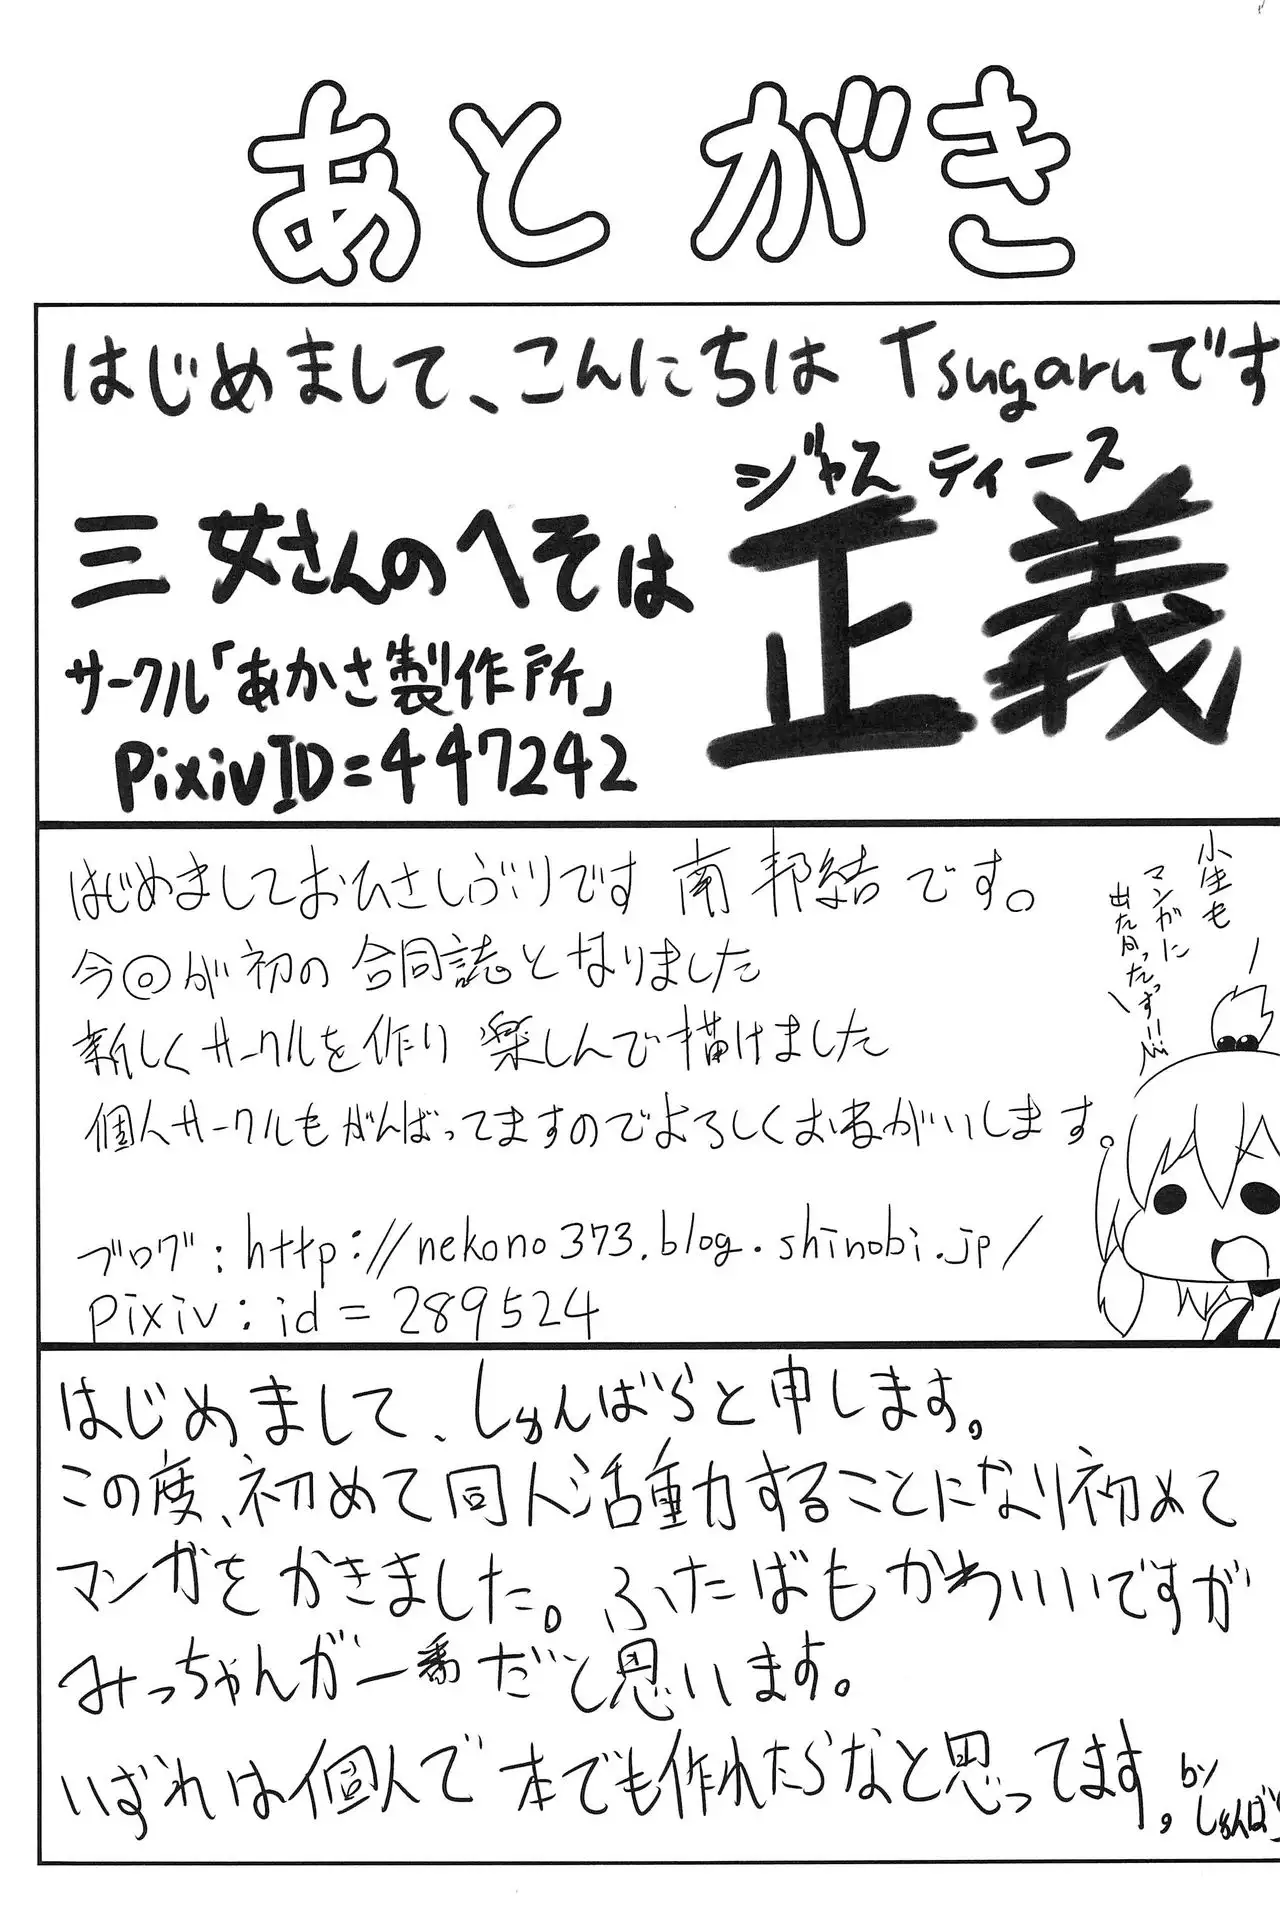 あとがき
はじめまして、こんにちは Tsugaruです
ジャスティース
三女さんのへそは正義
サークル「あかさ製作所」
PixivID=447242
はじめましておひさしぶりです 南 邦結です。
今@が初の合同誌となりました
新しくサークルを作り 楽しんで描けました
個人サークルもがんばってますのでよろしくおねがいします。
ブログ:http://nekono373.blog.shinobi.jp/
pixiv:id=289524
小生も
マンガに
出たかったずぃ!!
はじめまして、しゅんばらと申します。
この度、初めて同人活動することになり初めて
マンガをかきました。ふたばもかわいいですが
みっちゃんが一番だと思います。
いずれは個人で本でも作れたらなと思ってます。by
しゅんばら